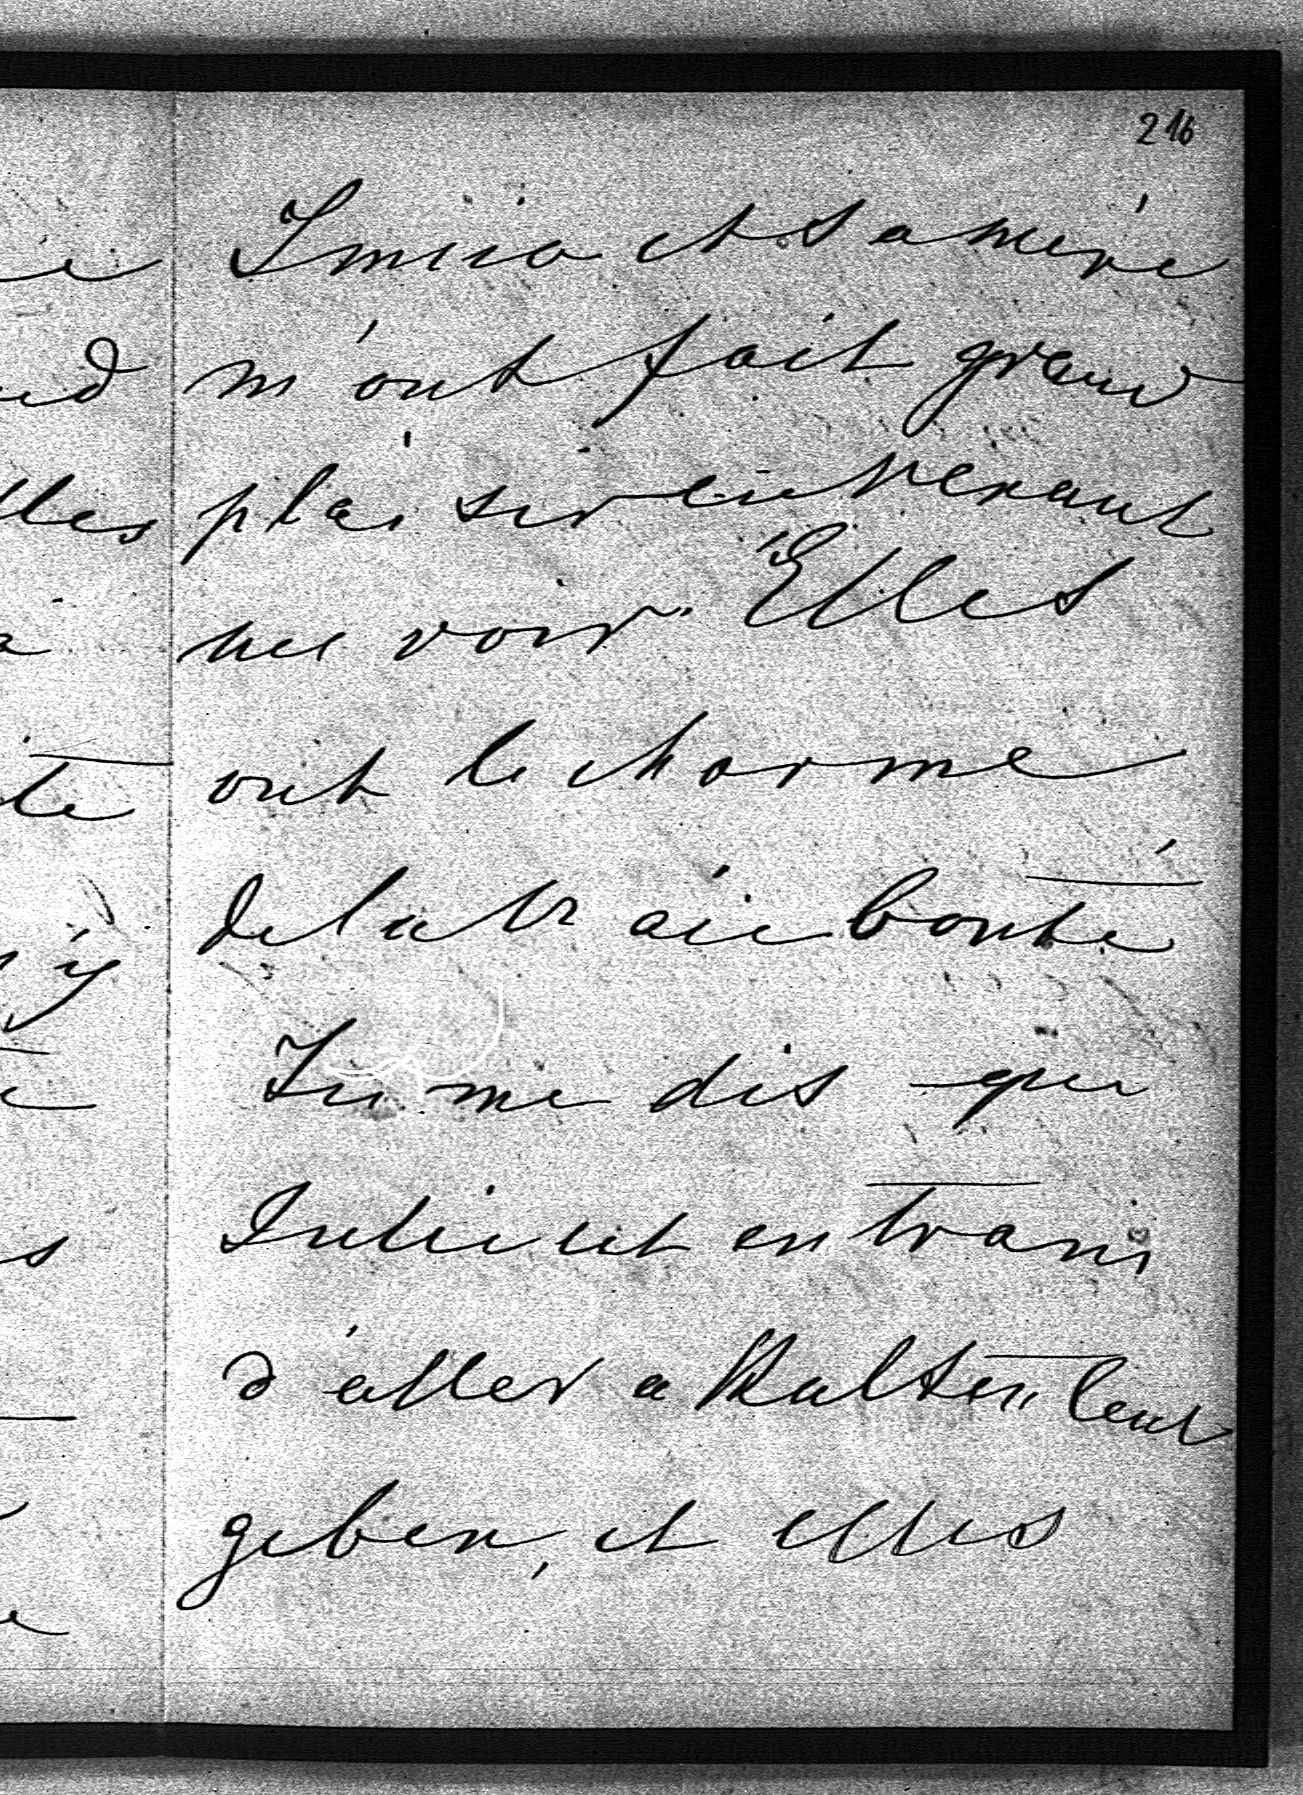 216
Irmiia et sa mère
m'ont fait grand
plaisir en venant
me voir. Elles
ont le charme
de la vraie bonté
Tu me dis que
Julie est en train
d'aller a Kaltenleut
geben, et elles